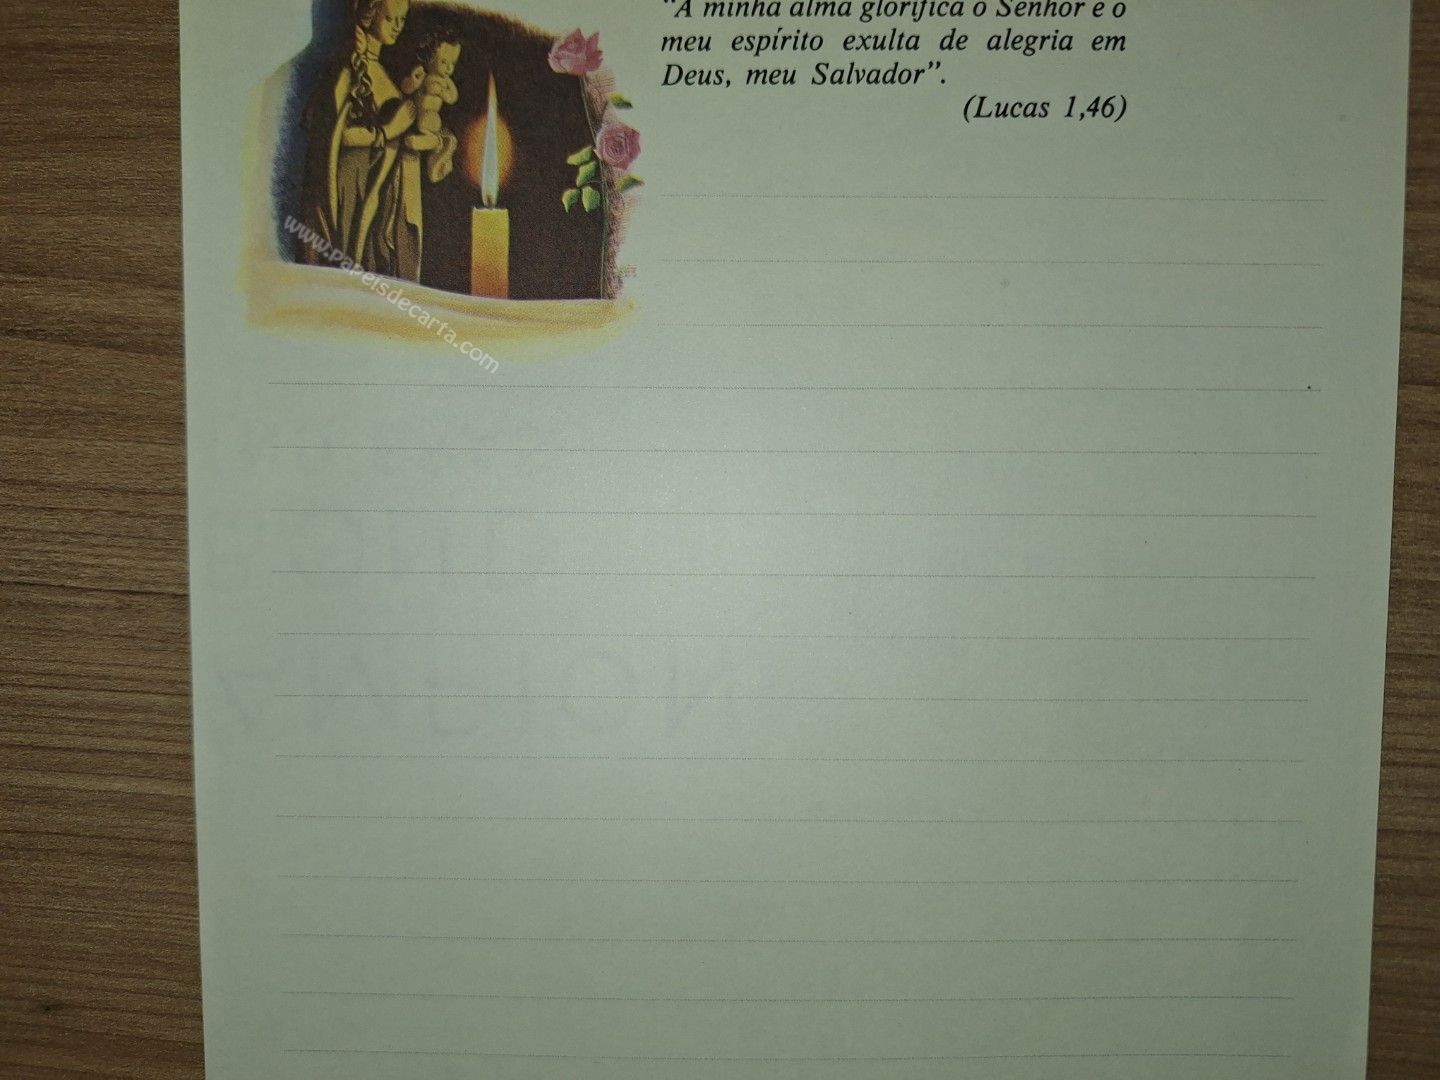 "A minha alma glorifica o Senhor e o
meu espírito exulta de alegria em
Deus, meu Salvador".
(Lucas 1,46)
www.papeisdecarta.com